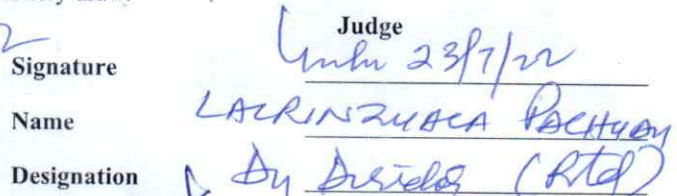 Judge
Signature 23/7/22
Name LALRINZUALA PACHUAU
Designation Dy Director (Rtd)